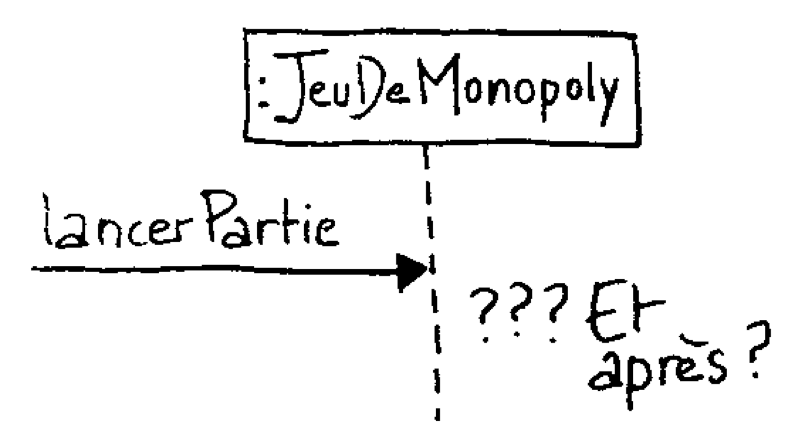 :JeuDeMonopoly
lancerPartie
??? Et
après ?